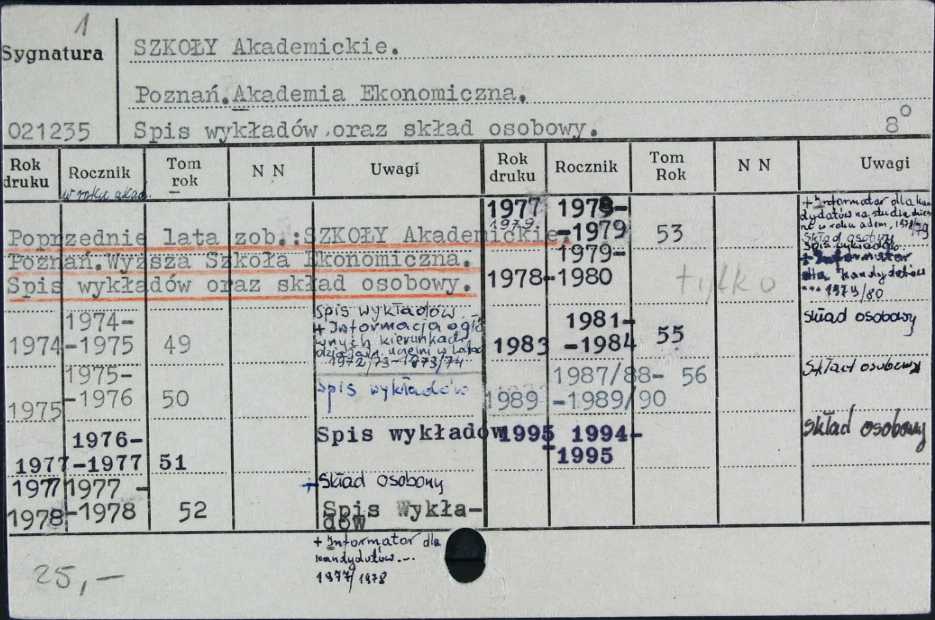 1
Sygnatura
SZKOŁY Akademickie.
Poznań.Akademia Ekonomiczna.
021235
Spis wykładów oraz skład osobowy.
8°
Rok druku
Rocznik
Tom rok
N N
Uwagi
Rok druku
Rocznik
Tom Rok
N N
Uwagi
w roku akad.
Poprzednie lata zob.:SZKOŁY Akademickie.
Poznań.Wyższa Szkoła Ekonomiczna.
Spis wykładów oraz skład osobowy.
1974 1974-1975 49
spis wykładów.
+ Informacja o
wnych kierunkach
uczelni w latach
1972/73-1973/74
1975 1975-1976 50
spis wykładów
1977 1976-1977 51
Spis wykładów
1977
1978 1977-1978 52
+ Skład osobowy
Spis Wykła-
dów
+ Informator dla
kandydatów...
1977/1978
1977
1979 1978-1979 53
+ Informator dla kan
dydatów na studia
w roku adem. 1978/79
Skład osobowy
Spis wykładów
1978 1979-1980
tylko
+ Informator
dla kandydatów
... 1979/80
1983 1981-1984 55
skład osobowy
1989 1987/88-1989/90 56
Skład osobowy
1995 1994-1995
skład osobowy
25,-